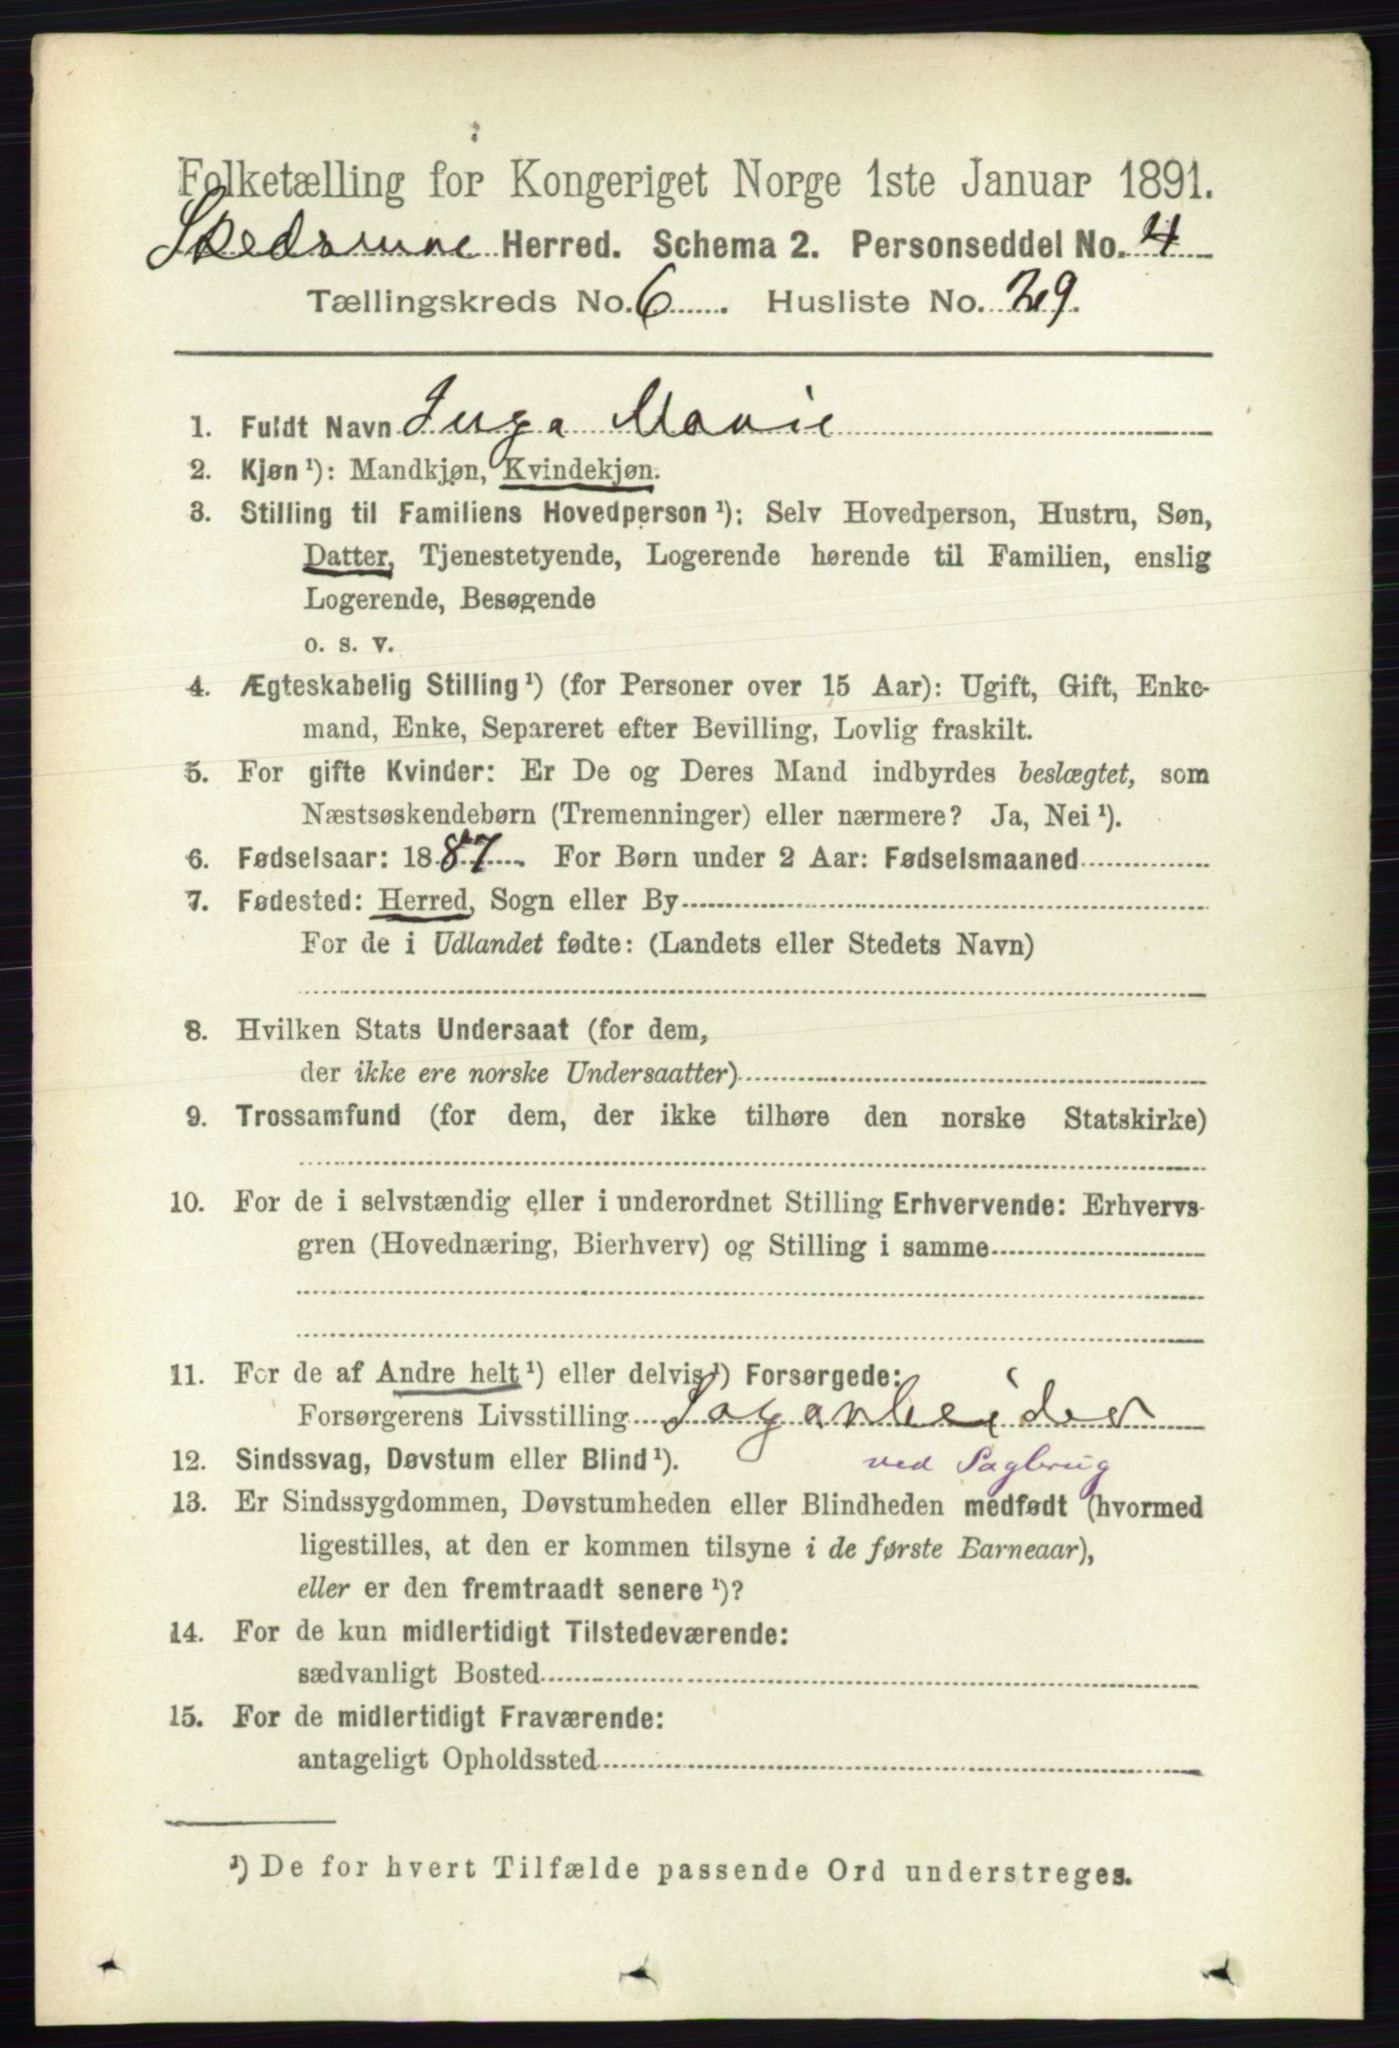 Folketælling for Kongeriget Norge 1ste Januar 1891.
Skedsmo Herred. Schema 2. Personseddel No. 4
Tællingskreds No. 6. Husliste No. 29.
1. Fuldt Navn Inga Marie
2. Kjøn ¹): Mandkjøn, Kvindekjøn.
3. Stilling til Familiens Hovedperson ¹): Selv Hovedperson, Hustru, Søn,
Datter, Tjenestetyende, Logerende hørende til Familien, enslig
Logerende, Besøgende
o. s. v.
4. Ægteskabelig Stilling ¹) (for Personer over 15 Aar): Ugift, Gift, Enke-
mand, Enke, Separeret efter Bevilling, Lovlig fraskilt.
5. For gifte Kvinder: Er De og Deres Mand indbyrdes beslægtet, som
Næstsøskendebørn (Tremenninger) eller nærmere? Ja, Nei ¹).
6. Fødselsaar: 1887. For Børn under 2 Aar: Fødselsmaaned
7. Fødested: Herred, Sogn eller By
For de i Udlandet fødte: (Landets eller Stedets Navn)
8. Hvilken Stats Undersaat (for dem,
der ikke ere norske Undersaatter)
9. Trossamfund (for dem, der ikke tilhøre den norske Statskirke)
10. For de i selvstændig eller i underordnet Stilling Erhvervende: Erhvervs-
gren (Hovednæring, Bierhverv) og Stilling i samme
11. For de af Andre helt ¹) eller delvis ¹) Forsørgede:
Forsørgerens Livsstilling Sagarbeider
12. Sindssvag, Døvstum eller Blind ¹). ved Sagbrug
13. Er Sindssygdommen, Døvstumheden eller Blindheden medfødt (hvormed
ligestilles, at den er kommen tilsyne i de første Barneaar),
eller er den fremtraadt senere ¹)?
14. For de kun midlertidigt Tilstedeværende:
sædvanligt Bosted
15. For de midlertidigt Fraværende:
antageligt Opholdssted
¹) De for hvert Tilfælde passende Ord understreges.